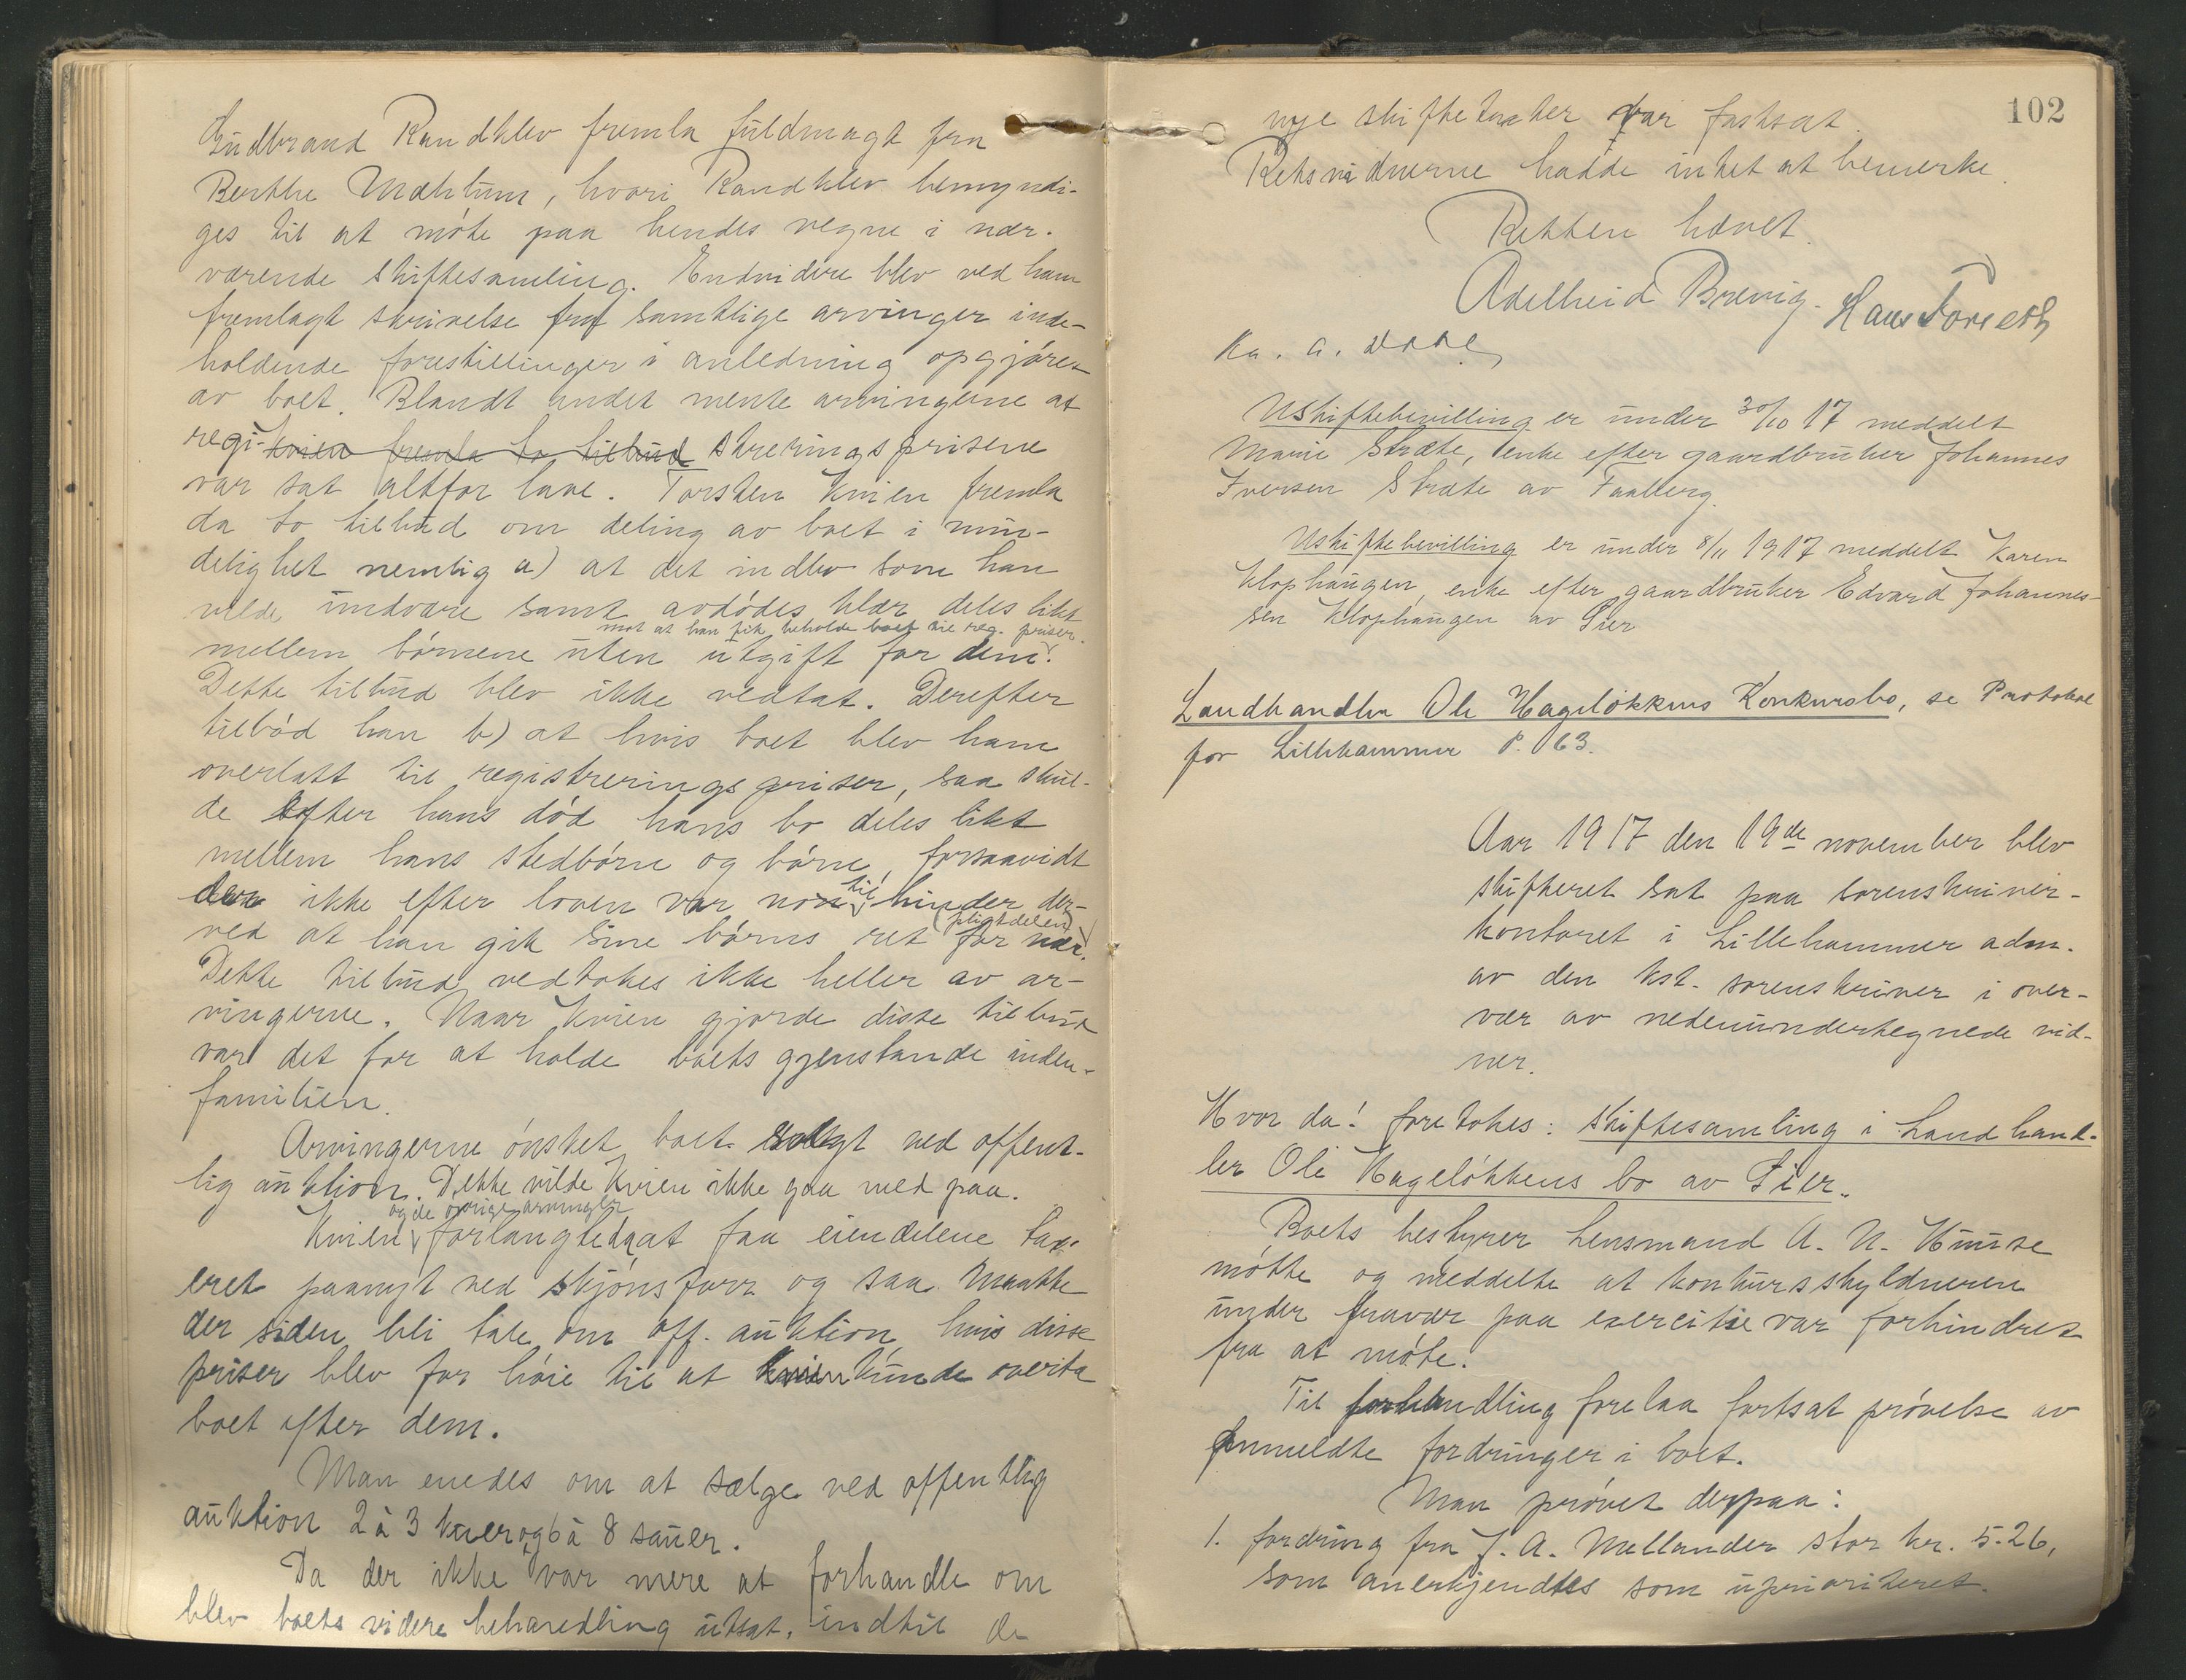 Gudbrand Randklev fremla fuldmagt fra
Berthe Mæhlum, hvori Randklev bemyndi-
ges til at møte paa hendes vegne i nær-
værende skiftesamling. Endvidere blev ved ham
fremlagt skrivelse fra samtlige arvinger inde-
holdende forestillinger i anledning opgjøret
av boet. Blandt andet mente arvingerne at
regi- Kvien fremla to tilbud streringsprisene
var sat altfor lave. Torsten Kvien fremla
da to tilbud om deling av boet i min-
delighet nemlig a) at det indbo som han
vilde undvære samt avdødes klær deles likt
mot at han fik beholde boet til reg. priser.
mellem børnene uten utgift for dem.
Dette tilbud blev ikke vedtat. Derefter
tilbød han b) at hvis boet blev ham
overlatt til registreringspriser, saa skul-
de efter hans død hans bo deles likt
mellem hans stedbørn og børn, forsaavidt
der ikke efter loven var noe til hinder der-
(pligtdelen)
ved at han gik sine børns ret for nær.
Dette tilbud vedtokes ikke heller av ar-
vingerne. Naar Kvien gjorde disse tilbud
var det for at holde boets gjenstande inden-
familien.
Arvingerne ønsket boet solgt ved offent-
lig auktion. Dette vilde Kvien ikke gaa med paa.
og de øvrige arvinger
Kvien forlangte at faa eiendelene tax-
eret paanyt ved skjønsforr og saa maatte
der siden bli tale om off. auktion hvis disse
priser blev for høie til at Kvien kunde overta
boet efter dem.
Man enedes om at sælge ved offentlig
auktion 2 à 3 kuer og 6 à 8 sauer.
Da der ikke var mere at forhandle om
blev boets videre behandling utsat, indtil de
102
nye skiftetakter var fastsat.
Retsvidnerne hadde intet at bemerke.
Retten hævet.
Adelheid Brevig. Hans Forseth
Ka. A. Dahl
Uskiftebevilling er under 30/10 17 meddelt
Marie Stræte, enke efter gaardbruker Johannes
Iversen Stræte av Faaberg.
Uskiftebevilling er under 8/11 1917 meddelt Karen
Klophaugen, enke efter gaardbruker Edvard Johannes-
sen Klophaugen av Øier
Landhandler Ole Hageløkkens Konkursbo, se Protokol
for Lillehammer P. 63.
Aar 1917 den 19de november blev
skifteret sat paa sorenskriver-
kontoret i Lillehammer adm.
av den kst. sorenskriver i over-
vær av nedenundertegnede vid-
ner.
Hvor da! foretokes: skiftesamling i Landhand-
ler Ole Hageløkkens bo av Øier.
Boets bestyrer Lensmand A. N. Huuse
møtte og meddelte at konkursskyldneren
under fravær paa exercitie var forhindret
fra at møte.
Til forhandling forelaa fortsat prøvelse av
anmeldte fordringer i boet.
Man prøvet derpaa:
1. fordring fra J. A. Mellander stor kr. 5.26,
som anerkjendtes som uprioriteret.